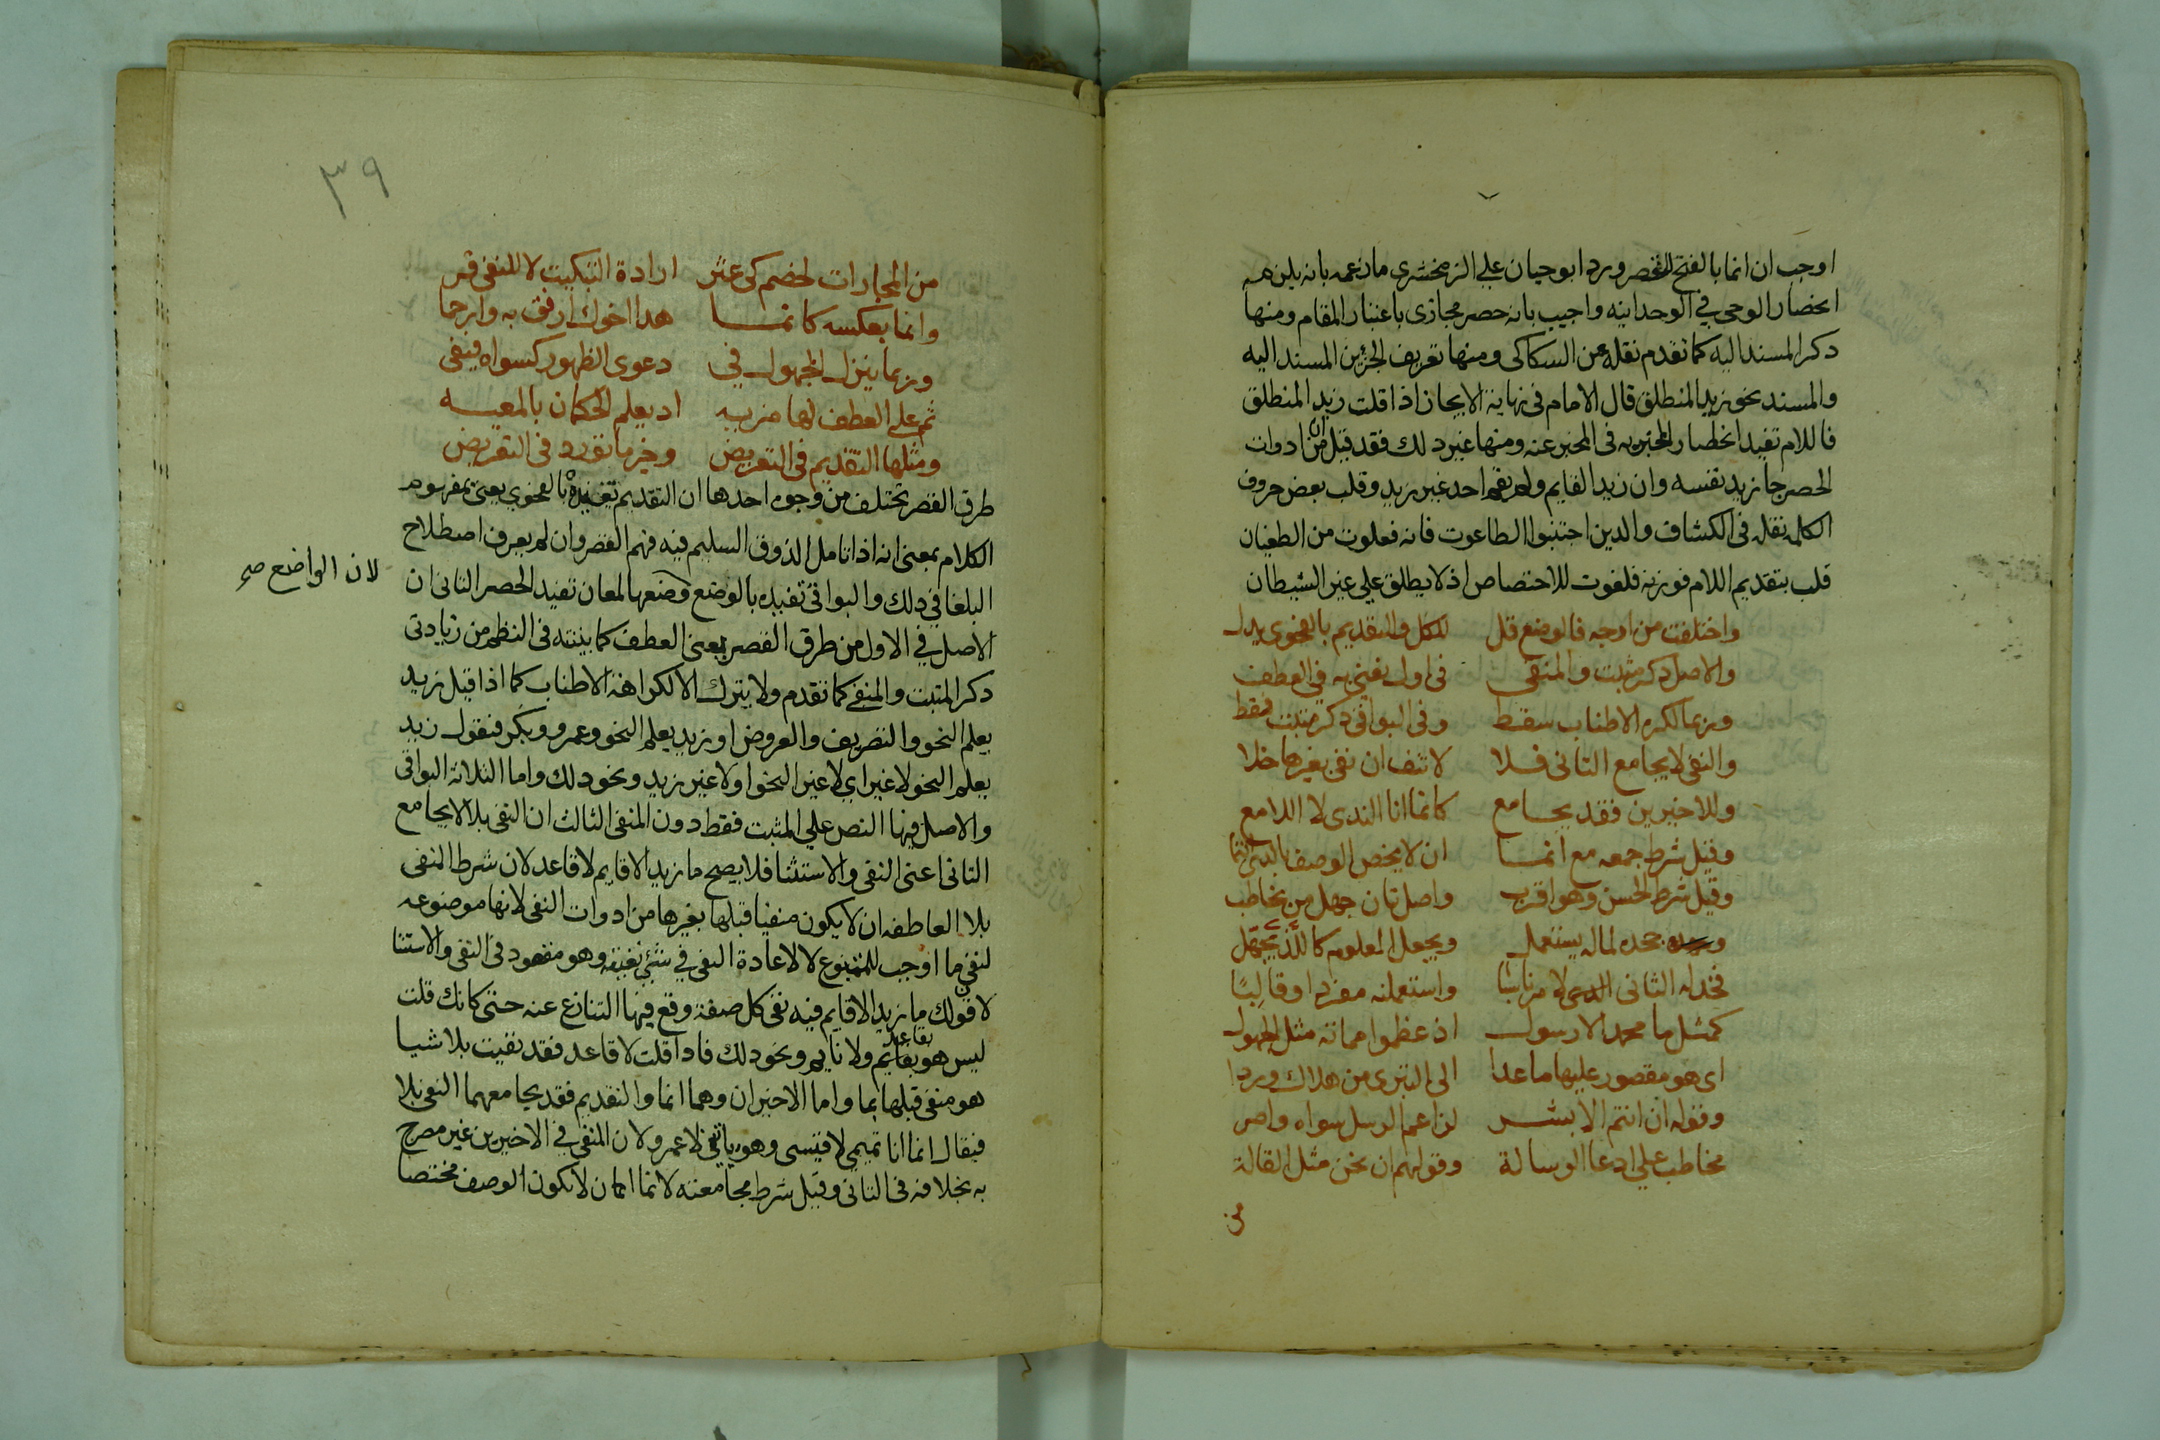 اوجب ان انما بالفتح للحصر ورد ابو حيان على الزمخشري ما زعمه بانه يلزمه
انحصار الوحى في الوحدانيه واجيب بانه حصر مجازى باعتبار المقام ومنها
ذكر المسند اليه كما تقدم نقله عن السكاكى ومنها تعريف الجزئين المسند اليه
والمسند نحو زيد المنطلق قال الامام فى نهاية الايجاز اذا قلت زيد المنطلق
فاللام تفيد انحصار المخبر به فى المخبر عنه ومنها غير ذلك فقد قيل ان من ادوات
الحصر جا زيد نفسه وان زيدا لقايم ولم يقم احد غير زيد وقلب بعض حروف
الكلمه نقله فى الكشاف والدين اجتنبوا الطاغوت فانه فعلوت من الطغيان
قلب بتقديم اللام فوزنه فلعوت للاختصاص اذ لا يطلق على غير الشيطان
واختلفت من اوجه فالوضع قل للكل والتقديم بالفحوى يدل
والاصل ذكر مثبت والمنفى فى اول يعنى به في العطف
وربما لكره الاطناب سقط وفى البواقى ذكر مثبت فقط
والنفى لا يجامع الثانى فلا لا تنف ان نفى بغيرها خلا
وللاخيرين فقد يجامع كانما انا الندى لا اللامع
وقيل شرط جمعه مع انما ان لا يخص الوصف بالذى انتما
وقيل شرط الحسن وهو اقرب واصل ثان جهل من يخاطب
جحده لما له يستعمل ويجعل المعلوم كاللذ يجهل
فخذ له الثانى لامر ناسبا واستعملنه مفردا وقالبًا
كمثل ما محمد الا رسول اذ عظموا مماته مثل الجهول
اى هو مقصور عليها ما عدا الى التبرى من هلاك وردا
وقوله ان انتم الا بشر لزاعم الرسل سواه واصر
مخاطب على ادعا الرسالة وقولهم ان نحن مثل القالة
من
٣٩
من المجارات لخصم كى عثر ارادة التبكيت لا للنفى قر
وانما بعكسه كانما هدا اخوك ارفق به وارحما
وربما ينزل المجهول في دعوى الظهور كسواه فيفى
ثم على العطف لها مزيه اد يعلم الحكمان بالمعيه
ومثلها التقديم فى التعريض وخير ما تورد فى التعريض
طرق القصر تختلف من وجوه احدها ان التقديم تفيده بالفحوي يعنى بمفهوم
الكلام بمعنى انه اذا تامل الذوق السليم فيه فهم القصر وان لم يعرف اصطلاح
البلغا في ذلك والبواقى تفيده بالوضع وضعها لمعان تفيد الحصر الثانى ان
لان الواضع صح
الاصل في الاول من طرق القصر يعنى العطف كما بينته فى النظم من زيادتى
ذكر المثبت والمنفى كما تقدم ولا يترك الا لكراهة الاطناب كما اذا قيل زيد
يعلم النحو والتصريف والعروض او زيد يعلم النحو وعمرو وبكر فتقول زيد
يعلم النحو لا غير اي لا غير النحو او لا غير زيد ونحو ذلك واما الثلاثة البواقى
والاصل فيها النص على المثبت فقط دون المنفى الثالث ان النفى بلا لا يجامع
الثانى اعنى النفى والاستثنا فلا يصح ما زيد الا قايم لا قاعد لان شرط المنفى
بلا العاطفه ان لا يكون منفيا قبلها بغيرها من ادوات النفى لانها موضوعه
لنفى ما اوجب للمتبوع لا لاعادة النفى في شئ نفيته وهو مفقود فى النفى والاستثنا
لان قولك ما زيد الا قايم فيه نفى كل صفة وقع فيها التنازع عنه حتى كانك قلت
ليس هو بقاعد بقائم ولا نايم ونحو ذلك فاذا قلت لا قاعد فقد نفيت بلا شيا
هو منفى قبلها بما واما الاخيران وهما انما والتقديم فقد يجامعهما النفى بلا
فيقال انما انا تميمي لا قيسى وهو ياتى لا عمرو لان المنفى في الاخيرين غير مصرح
به بخلافه فى الثانى وقيل شرط مجامعته لانما ان لا يكون الوصف مختصا